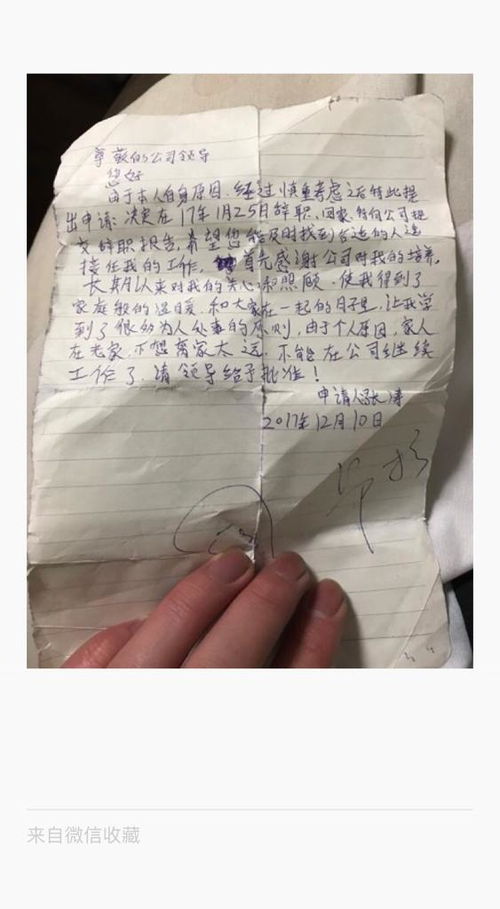 尊敬的公司领导
您好
由于本人自身原因,经过慎重考虑之后特此提
出申请:决定在17年1月25日辞职,回家,特向公司提
交辞职报告,希望您能及时找到合适的人选
接任我的工作, 首先感谢公司对我的培养,
长期以来对我的关心和照顾,使我得到了
家庭般的温暖,和大家在一起的日子里,让我学
到了很多为人处事的原则,由于个人原因,家人
在老家,不想离家太远,不能在公司继续
工作了,请领导给予批准!
申请人张涛
2017年12月10日
来自微信收藏